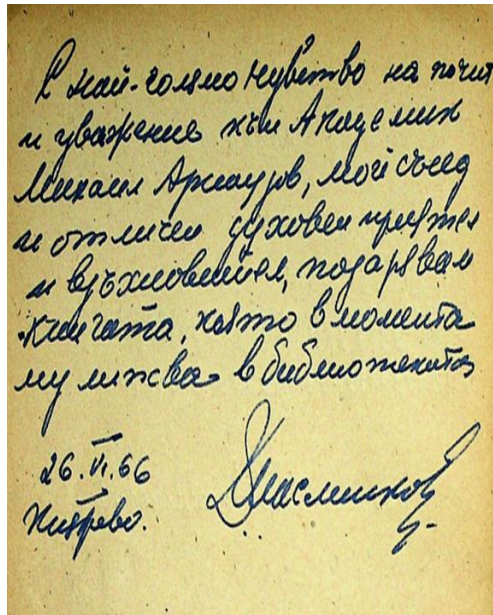 С най-голямо чувство на почит
и уважение към Академик
Михаил Арнаудов, мой съсед
и отличен духовен приятел
и вдъхновител, подарявам
книгата, която в момента
му липсва в библиотеката
26.VI.66